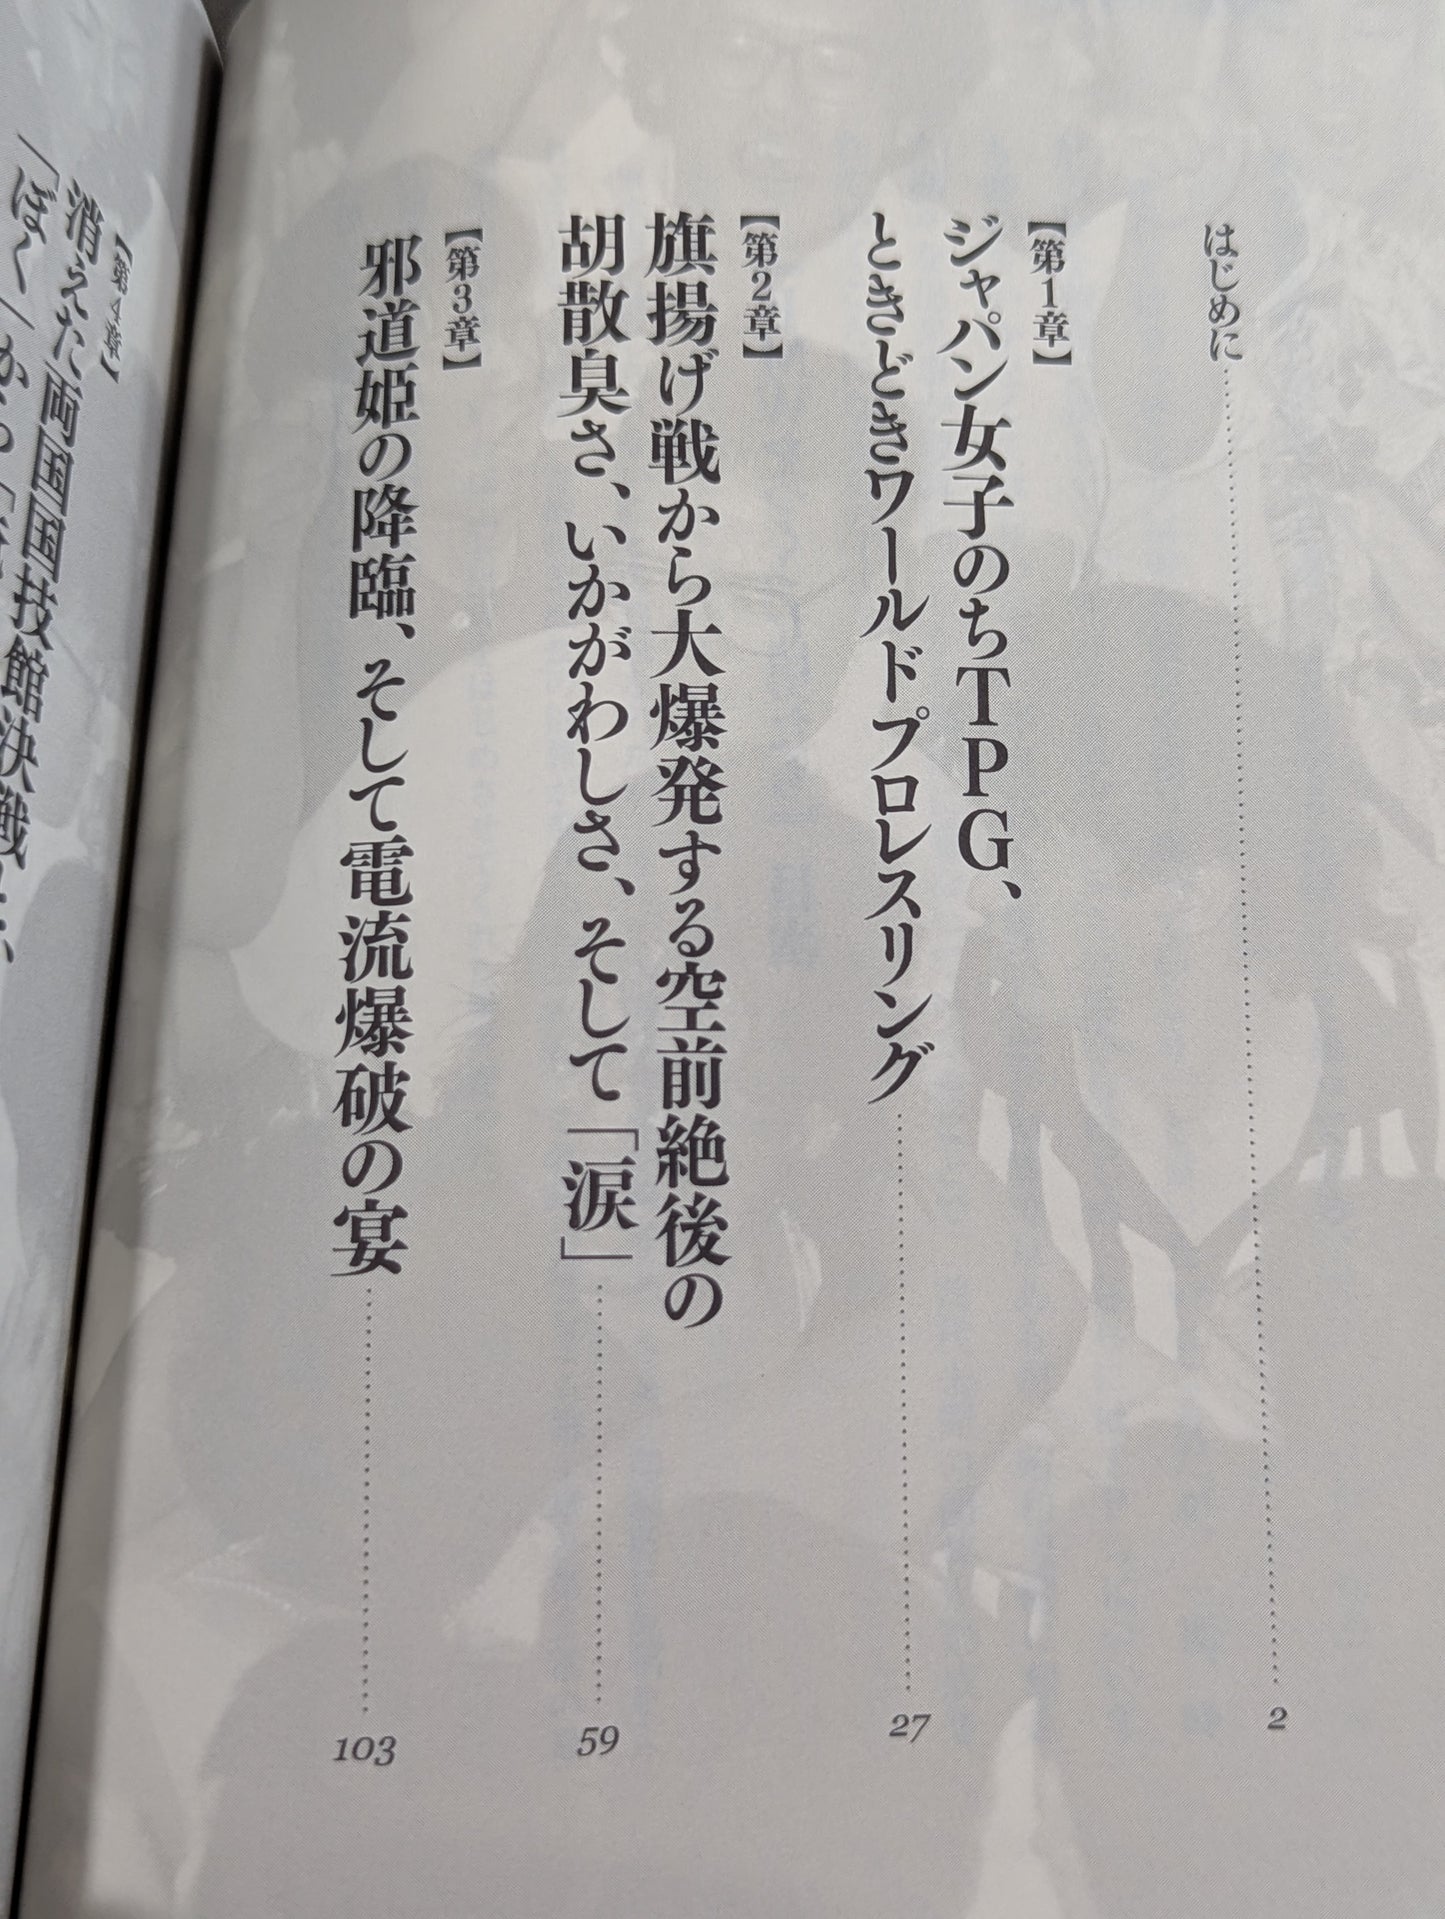 はじめに 2
【第1章】
ジャパン女子のちTPG、
ときどきワールドプロレスリング 27
【第2章】
旗揚げ戦から大爆発する空前絶後の
胡散臭さ、いかがわしさ、そして「涙」 59
【第3章】
邪道姫の降臨、そして電流爆破の宴 103
【第4章】
消えた両国国技館決戦
「ぼく」から「